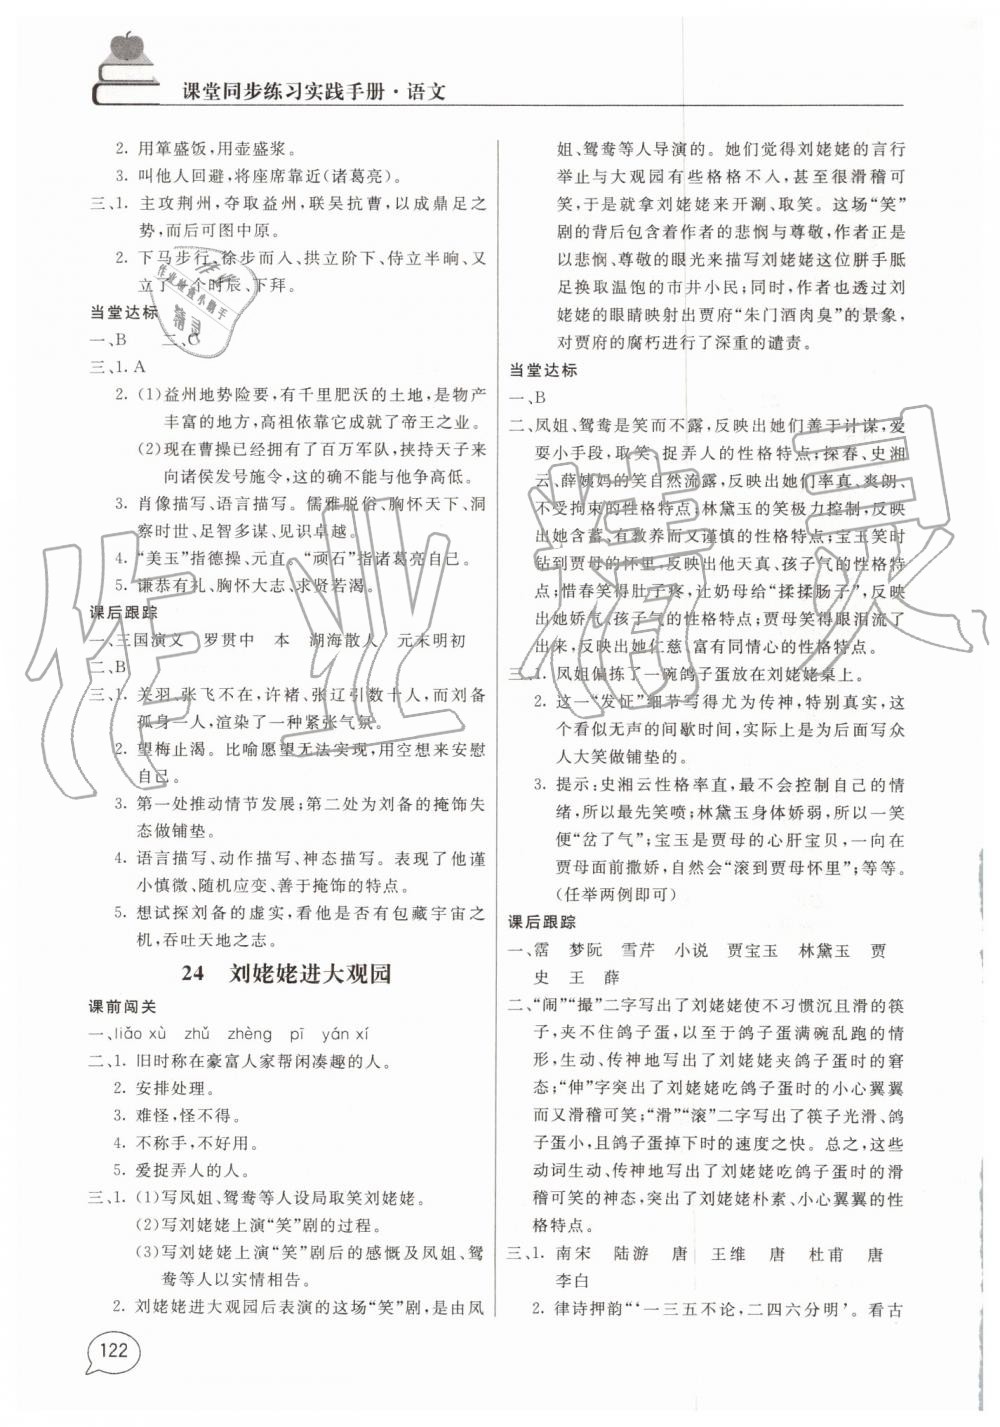 课堂同步练习实践手册·语文
2. 用箪盛饭,用壶盛浆。
3. 叫他人回避,将座席靠近(诸葛亮)。
三、1. 主攻荆州,夺取益州,联吴抗曹,以成鼎足之
势,而后可图中原。
2. 下马步行、徐步而入、拱立阶下、侍立半晌、又
立了一个时辰、下拜。
当堂达标
一、B 二、C
三、1. A
2. (1)益州地势险要,有千里肥沃的土地,是物产
丰富的地方,高祖依靠它成就了帝王之业。
(2)现在曹操已经拥有了百万军队,挟持天子来
向诸侯发号施令,这的确不能与他争高低。
3. 肖像描写、语言描写。儒雅脱俗、胸怀天下、洞
察时世、足智多谋、见识卓越。
4. “美玉”指德操、元直。“顽石”指诸葛亮自己。
5. 谦恭有礼、胸怀大志、求贤若渴。
课后跟踪
一、三国演义 罗贯中 本 湖海散人 元末明初
二、B
三、1. 关羽、张飞不在,许褚、张辽引数十人,而刘备
孤身一人,渲染了一种紧张气氛。
2. 望梅止渴。比喻愿望无法实现,用空想来安慰
自己。
3. 第一处推动情节发展;第二处为刘备的掩饰失
态做铺垫。
4. 语言描写、动作描写、神态描写。表现了他谨
小慎微、随机应变、善于掩饰的特点。
5. 想试探刘备的虚实,看他是否有包藏宇宙之
机,吞吐天地之志。
24 刘姥姥进大观园
课前闯关
一、liǎo xù zhǔ zhèng pī yán xí
二、1. 旧时称在豪富人家帮闲凑趣的人。
2. 安排处理。
3. 难怪,怪不得。
4. 不称手,不好用。
5. 爱捉弄人的人。
三、1. (1)写凤姐、鸳鸯等人设局取笑刘姥姥。
(2)写刘姥姥上演“笑”剧的过程。
(3)写刘姥姥上演“笑”剧后的感慨及凤姐、鸳
鸯等人以实情相告。
2. 刘姥姥进大观园后表演的这场“笑”剧,是由凤
姐、鸳鸯等人导演的。她们觉得刘姥姥的言行
举止与大观园有些格格不入,甚至是很滑稽可
笑,于是就拿刘姥姥来开涮、取笑。这场“笑”
剧的背后包含着作者的悲悯与尊敬,作者正是
以悲悯、尊敬的眼光来描写刘姥姥这位胼手胝
足换取温饱的市井小民;同时,作者也以刘
姥姥的眼睛映射出贾府“朱门酒肉臭”的景象,
对贾府的腐朽进行了深重的谴责。
当堂达标
一、B
二、凤姐、鸳鸯是笑而不露,反映出她们善于计谋,爱
耍小手段,取笑、捉弄人的性格特点;探春、史湘
云、薛姨妈的笑自然流露,反映出她们率真、爽朗、
不受拘束的性格特点;林黛玉的笑极力控制,反映
出她含蓄、有教养而又谨慎的性格特点;宝玉笑时
钻到贾母的怀里,反映出他天真、孩子气的性格特
点;惜春笑得肚子疼,让奶母给“揉揉肠子”,反映
出她娇气、孩子气的性格特点;贾母笑得眼泪流了
出来,反映出她仁慈、富有同情心的性格特点。
三、1. 凤姐偏拣了一碗鸽子蛋放在刘姥姥桌上。
2. 这一“发怔”细节写得尤为传神,特别真实,这
个看似无声的间歇时间,实际上是为后面写众
人大笑做铺垫的。
3. 提示:史湘云性格率直,最不会控制自己的情
绪,所以最先笑喷;林黛玉身体娇弱,所以一笑
便“岔了气”;宝玉是贾母的心肝宝贝,一向在
贾母面前撒娇,自然会“滚到贾母怀里”;等等。
(任举两例即可)
课后跟踪
一、霑 梦阮 雪芹 小说 贾宝玉 林黛玉 贾
史 王 薛
二、“闹”“撮”二字写出了刘姥姥使不习惯沉且滑的筷
子,夹不住鸽子蛋,以至于鸽子蛋满碗乱跑的情
形,生动、传神地写出了刘姥姥夹鸽子蛋时的窘
态;“伸”字突出了刘姥姥吃鸽子蛋时的小心翼翼
而又滑稽可笑;“滑”“滚”二字写出了筷子光滑、鸽
子蛋小,且鸽子蛋掉下时的速度之快。总之,这些
动词生动、传神地写出了刘姥姥吃鸽子蛋时的滑
稽可笑的神态,突出了刘姥姥朴素、小心翼翼的性
格特点。
三、1. 南宋 陆游 唐 王维 唐 杜甫 唐
李白
2. 律诗押韵“‘一三五不论,二四六分明’。看古
122
作业精灵